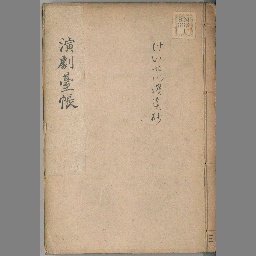 けいせい濱真砂
演劇臺帳
三